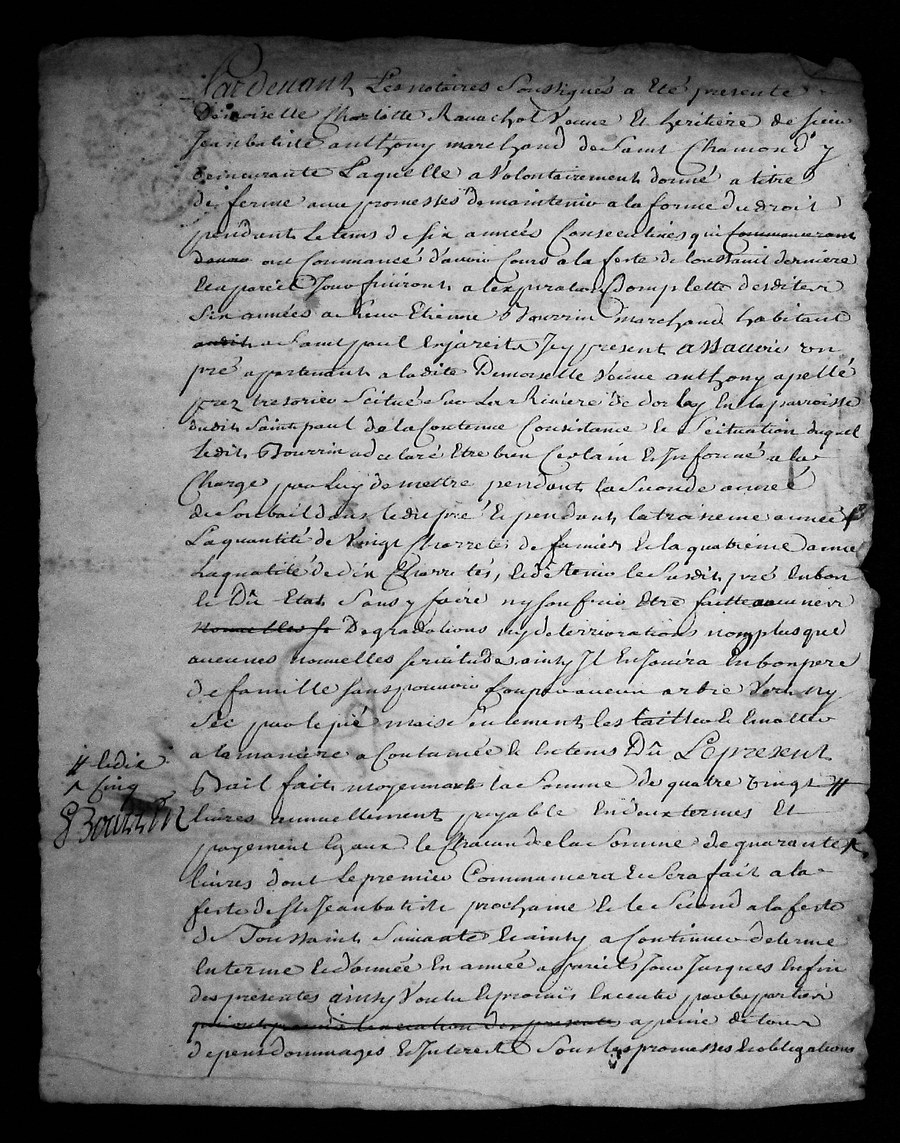 Pardevant Les notaires Soussignés a Eté presente
Demoiselle Charlotte Ravachol Veuve Et heritiere de sieur
Jeanbatiste anthony marchand de Saint Chamond y
demeurante Laquelle a Volontairement donné a titre
de ferme avec promesses de maintenir a la forme du droit
pendant le tems de six années Consecutives qui Commanceront
ont Commancé d'avoir Cours a la feste de toussaint derniere
Et a pareil Jour finiront a l'expiration Complette desdites
Six années a Sieur Etienne Bourrin marchand habitant
audit a Saint paul En jarest Icy present assavoir un
pré apartenant a ladite Demoiselle Veuve anthony apellé
prez tresorier Scitué Sur La Riviere de dorlay En la parroisse
dudit Saint paul de la Contenue Consistance Et Scituation duquel
ledit Bourrin a declaré Etre bien Certain Et Informé a la
Charge par luy de mettre pendant la Seconde année
dans ledit pré Et pendant la troisieme année
La quantité de Vingt Charretés de fumier Et la quatrieme année
La quatité de dix Charretés, Et de tenir le Susdit pré En bon
Et Dû Etat Sans y faire ny soufrir Etre faitte aucunes
nouvelles Degradations ny deteriorations non plus que
aucunes nouvelles servitudes ainsy Il En Jouira En bon pere
de famille sans pouvoir Couper aucun arbre Vert ny
Sec par le pié mais Seulement les tailler Et Emonder
a la maniere acoutumée Et En tems Dû Le present
Bail fait moyennant la Somme de quatre vingt #
livres annuellement payable En deux termes Et
payement Egaux de Chacun de la Somme de quarante ^
livres dont le premier Commancera Et Sera fait a la
feste de St Jeanbatiste prochaine Et le Second a la feste
de Toussaint Suivante Et ainsy a Continuer de terme
En terme Et d'année En année a pareils Jour Jusques En fin
des presentes ainsy Voulu Et promis Executer par les parties
qui ont promis l'execution des presentes a peine de tous
depens dommages Et Interests Sous les promesses Et obligations
# Et dix
^ Cinq
Bourrin